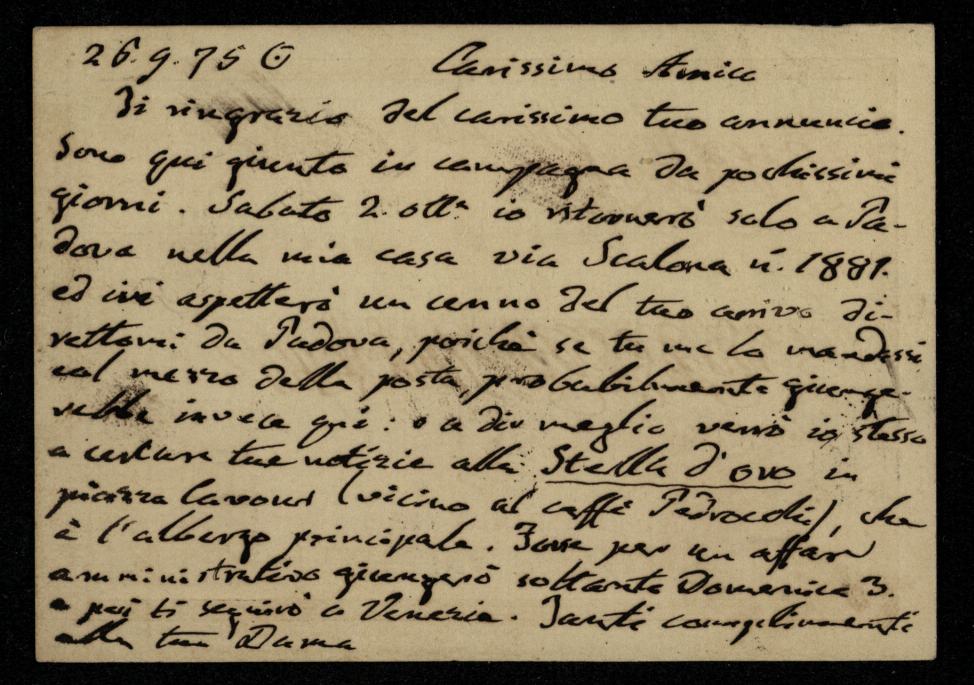 26.9.75 ⊙ Carissimo Amico
Ti ringrazio del carissimo tuo annuncio.
Sono qui giunto in campagna da pochissimi
giorni. Sabato 2. ott.e io ritornerò solo a Pa-
dova nella mia casa via Scalona n. 1881.
ed ivi aspetterò un cenno del tuo arrivo di-
rettomi da Padova, poichè se tu me lo mandassi
col mezzo della posta, probabilmente giunge-
rebbe invece qui: o a dir meglio verrò io stesso
a cercare tue notizie alla Stella d'oro in
piazza Cavour (vicino al caffè Pedrocchi), che
è l'albergo principale. Forse per un affare
amministrativo giungerò soltanto Domenica 3.
e poi ti seguirò a Venezia. Tanti complimenti
alla tua Dama